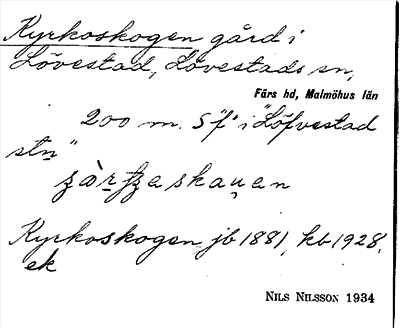 Kyrkoskogen gård i
Lövestad, Lövestads sn,
Färs hd, Malmöhus län
200 m. S "f" i "Löfvestad
stn"
Kyrkoskogen jb 1881, kb 1928.
ek
NILS NILSSON 1934